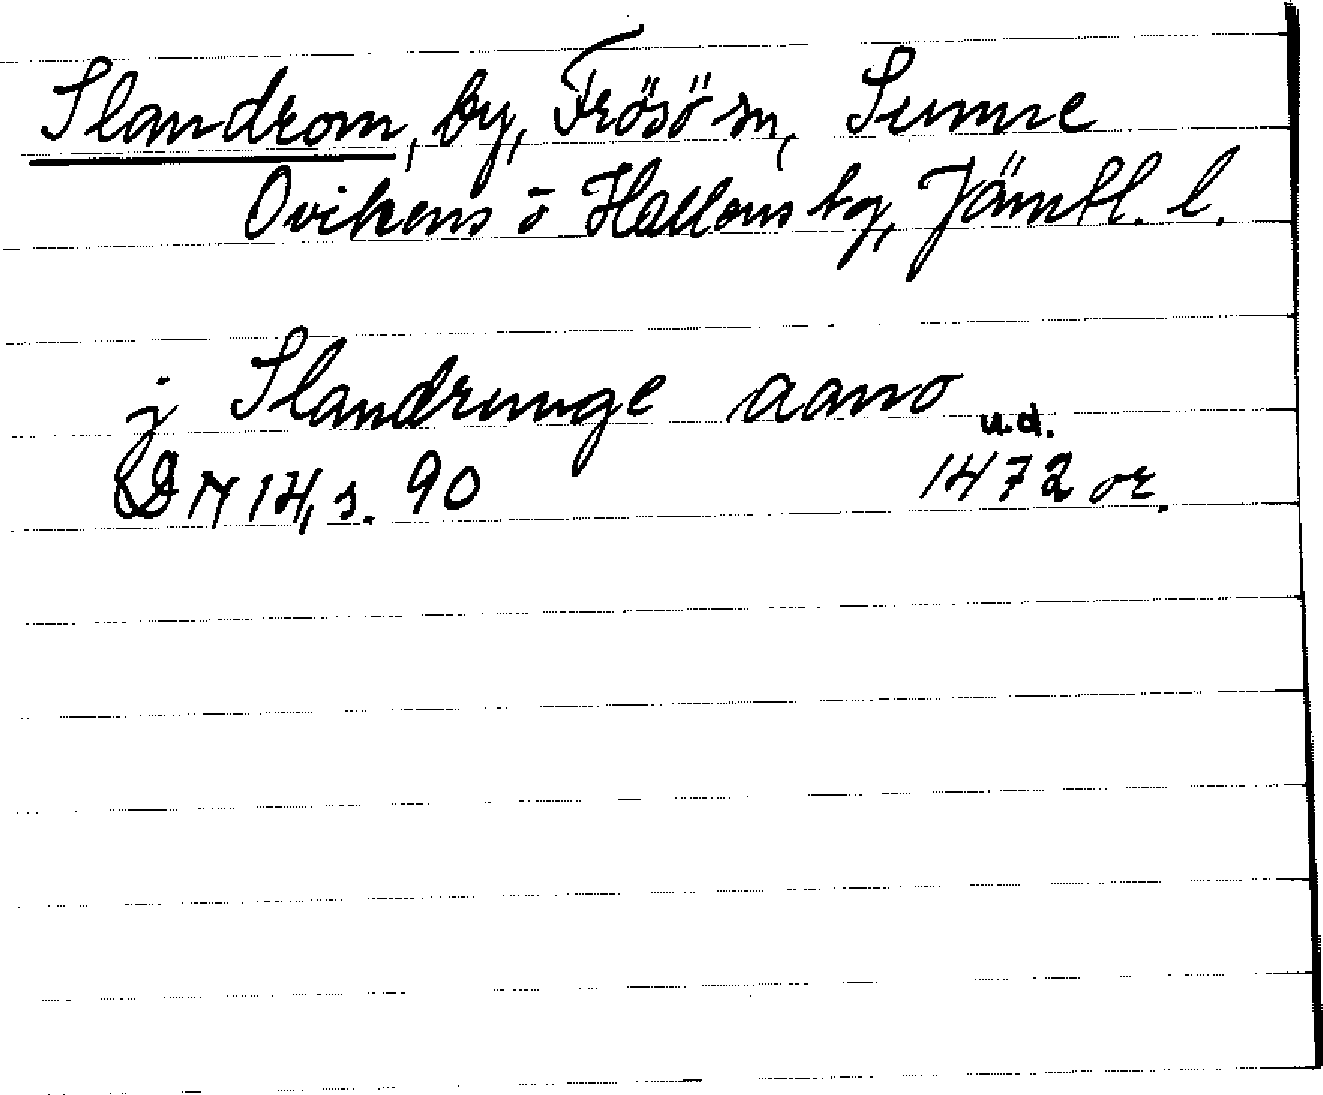 Slandrom, by, Frösö sn, Sunne
Ovikens o Hallens tg, Jämtl. l.
j Slandrunge aano
u.d.
DN 14, s. 90 1472 or.